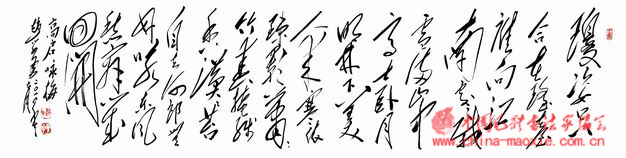 瓊姿只
合在瑶台
誰向江
南處處栽
雪满山中
高士卧月
明林下美
人来寒依
疏影萧萧
竹春掩残
香漠漠苔
自去何郎无
好咏东风
愁寂几
回開
高启咏梅
www.china-maoxie.com